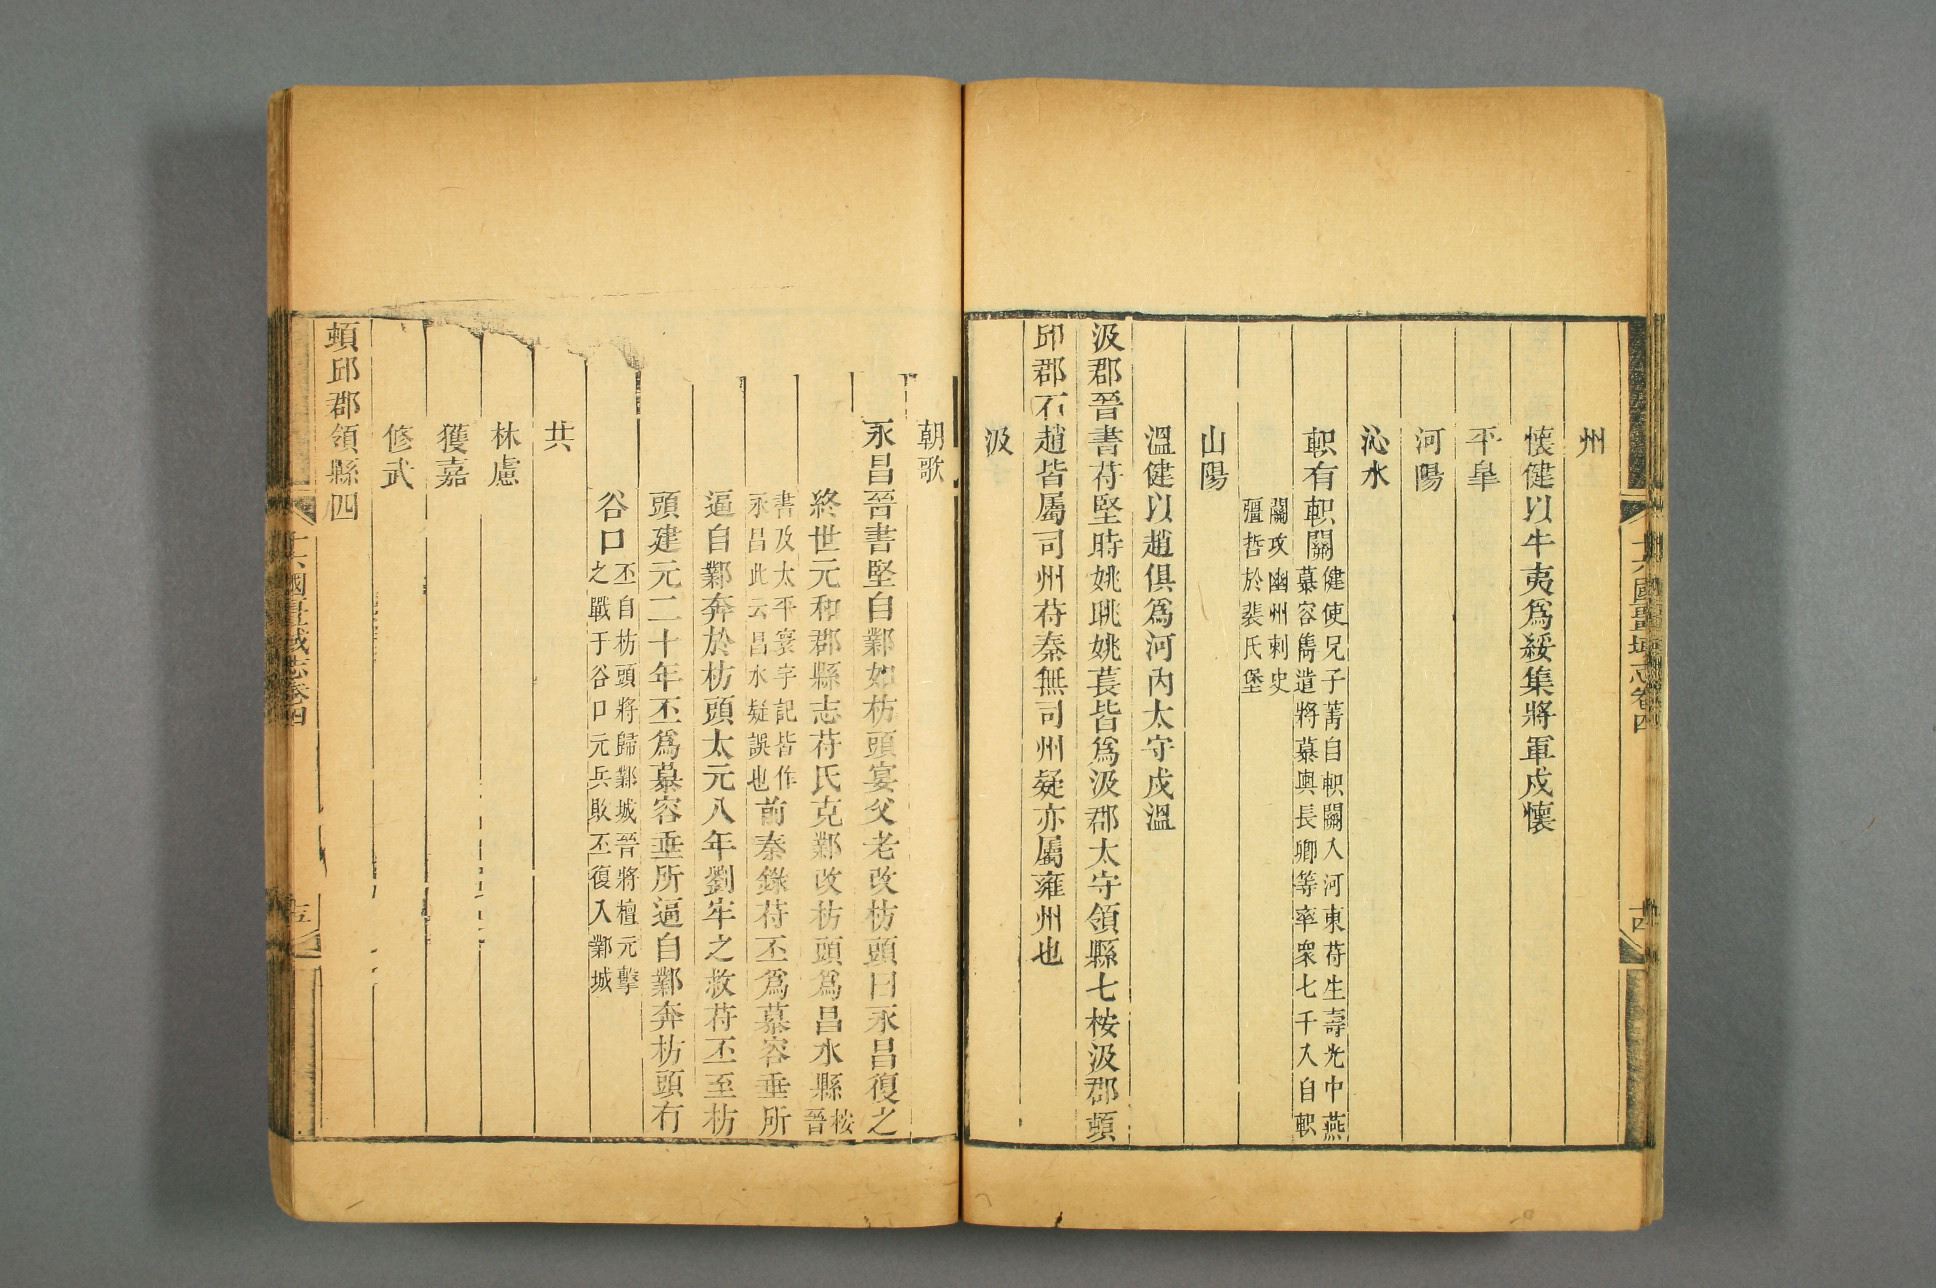 十六國疆域志卷四
十四
州
懷健以牛夷爲綏集將軍戍懷
平臯
河陽
沁水
軹有軹關健使兄子菁自軹關入河東苻生壽光中燕
慕容雋遣將慕輿長卿等率衆七千入自軹
關攻幽州刺史
彊哲於裴氏堡
山陽
溫健以趙俱爲河內太守戍溫
汲郡晉書苻堅時姚眺姚萇皆爲汲郡太守領縣七桉汲郡頓
邱郡石趙皆屬司州苻秦無司州疑亦屬雍州也
汲
朝歌
永昌晉書堅自鄴如枋頭宴父老改枋頭曰永昌復之
終世元和郡縣志苻氏克鄴改枋頭爲昌水縣桉
晉
書及太平寰宇記皆作
永昌此云昌水疑誤也前秦錄苻丕爲慕容垂所
逼自鄴奔於枋頭太元八年劉牢之救苻丕至枋
頭建元二十年丕爲慕容垂所逼自鄴奔枋頭有
谷口丕自枋頭將歸鄴城晉將檀元擊
之戰于谷口元兵敗丕復入鄴城
共
林慮
獲嘉
修武
頓邱郡領縣四
十六國疆域志卷四
十五